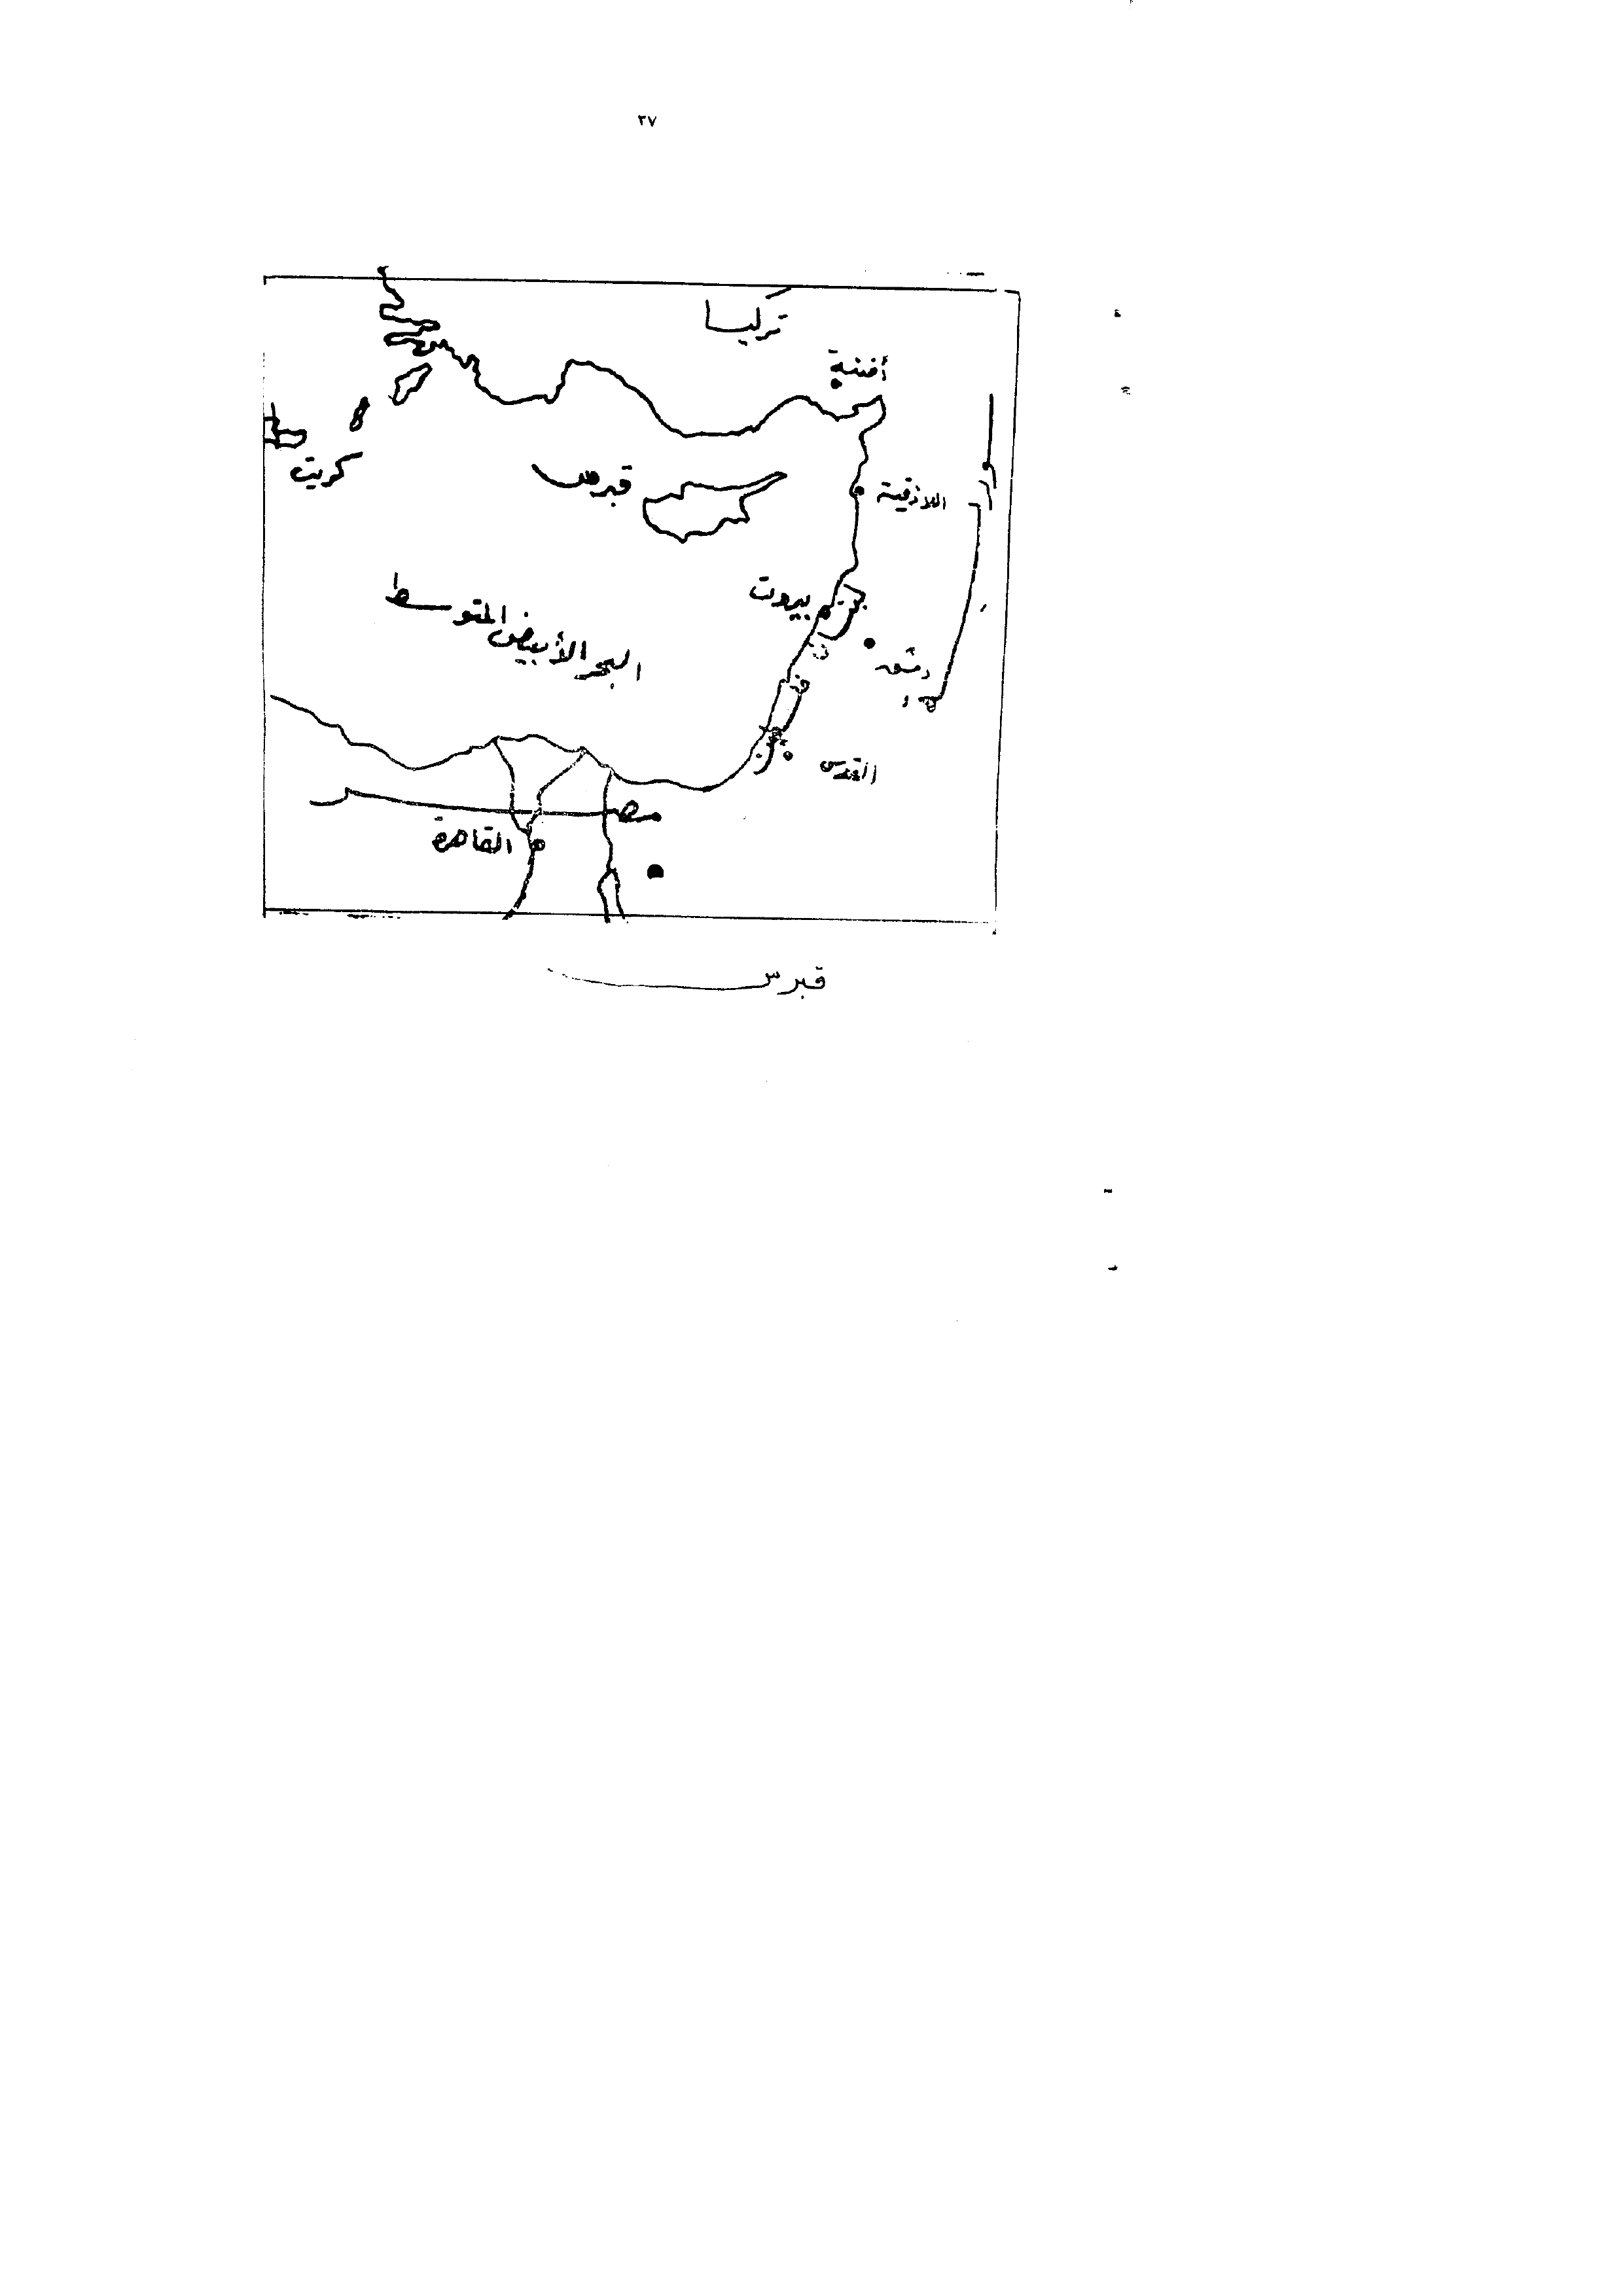 ٣٧
تركيا
أضنة
كريت
قبرص
اللاذقية
بيروت
البحر الأبيض المتوسط
دمشق
القدس
مصر
القاهرة
قبرس